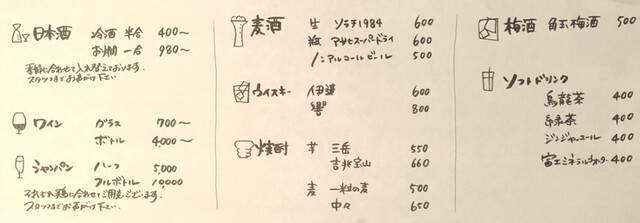 日本酒 冷酒 半合 400〜
お燗 一合 980〜
季節に合わせて入れ替えております。
スタッフまでお声がけ下さい。
ワイン グラス 700〜
ボトル 4000〜
シャンパン ハーフ 5,000
フルボトル 10000
それぞれ鶏に合わせてご用意ございます。
スタッフまでお声がけ下さい。
麦酒 生 ソラチ1984 600
瓶 アサヒスーパードライ 600
ノンアルコールビール 500
ウイスキー 伊達 600
響 800
焼酎 芋 三岳 550
吉兆宝山 660
麦 一粒の麦 500
中々 650
梅酒 角玉梅酒 500
ソフトドリンク
烏龍茶 400
緑茶 400
ジンジャーエール 400
富士ミネラルウォーター 400